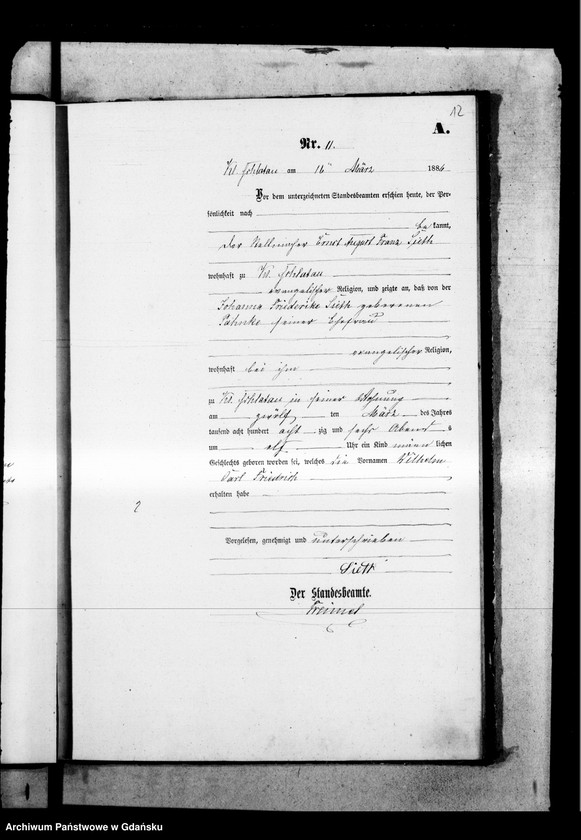 12
A.
Nr. 11.
Kl. Schlatau am 16ten März 1886
Vor dem unterzeichneten Standesbeamten erschien heute, der Per-
sönlichkeit nach
be kannt,
der Stellmacher Ernst August Franz
wohnhaft zu Kl. Schlatau
evangelischer Religion, und zeigte an, daß von der
Johanna Friederike geborenen
seiner Ehefrau
evangelischer Religion,
wohnhaft bei ihm
zu Kl. Schlatau in seiner Wohnung
am zwölf ten März des Jahres
tausend acht hundert acht zig und sechs Abend s
um elf Uhr ein Kind männ lichen
Geschlechts geboren worden sei, welches die Vornamen Wilhelm
Carl Friedrich
erhalten habe
Vorgelesen, genehmigt und unterschrieben
Der Standesbeamte.
Archiwum Państwowe w Gdańsku